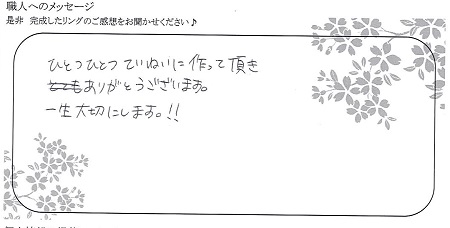 職人へのメッセージ
是非 完成したリングのご感想をお聞かせください♪
ひとつひとつ ていねいに 作って 頂き
ありがとうございます。
一生大切にします。!!